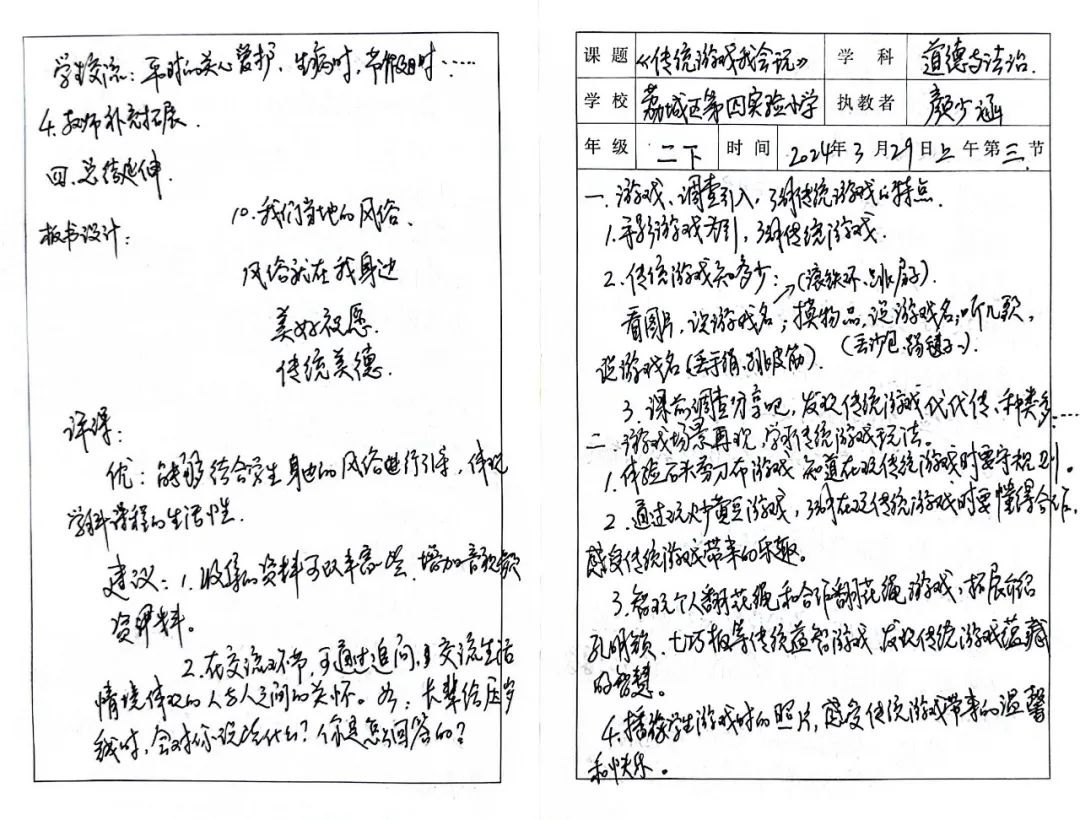 学生交流：平时的关心爱护、生病时，节假日时……
4.教师补充拓展.
四.总结延伸.
板书设计：
10.我们当地的风俗、
风俗就在我身边
美好祝愿.
传统美德.
评课：
优：能够结合学生身边的风俗进行引导，体现
学科课程的生活性.
建议：1.收集的资料可以丰富些、增加音视频
资料。
2.在交流环节，可通过追问，交流生活
情境体现的人与人之间的关怀。如：长辈给压岁
钱时，会对你说些什么？你是怎么回答的？
课题 《传统游戏我会玩》 学科 道德与法治.
学校 荔城区第四实验小学 执教者 颜少涵
年级 二下 时间 2024年3月29日上午第三节
一.游戏、调查引入，了解传统游戏的特点.
1.手影游戏为引，了解传统游戏.
2.传统游戏知多少：(滚铁环、跳房子).
看图片，说游戏名；摸物品，说游戏名；听儿歌，
(丢沙包、踢毽子).
说游戏名(丢手绢、跳皮筋).
3.课前调查分享吧，发现传统游戏代代传、种类多……
二.游戏场景再现，学习传统游戏玩法。
1.体验石头剪刀布游戏 知道在玩传统游戏时要守规则。
2.通过玩炒黄豆游戏，了解在玩传统游戏时要懂得合作，
感受传统游戏带来的乐趣。
3.玩个人翻花绳和合作翻花绳游戏，拓展介绍
孔明锁、七巧板等传统益智游戏，发现传统游戏蕴藏
的智慧。
4.播放学生游戏时的照片，感受传统游戏带来的温馨
和快乐。